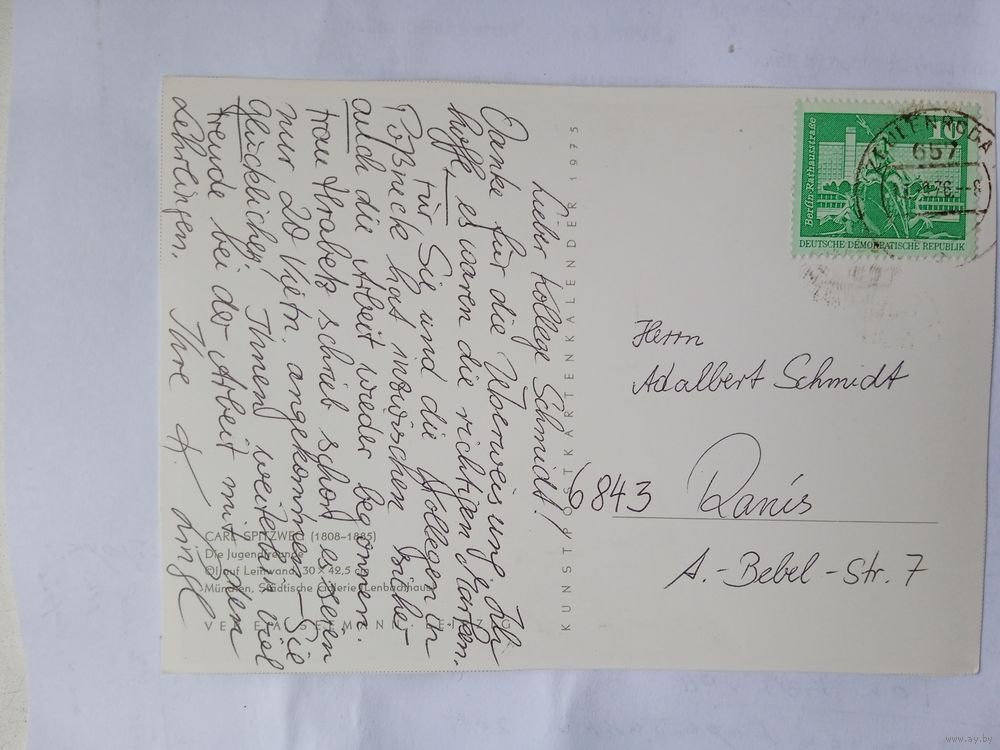 Lieber Kollege Schmidt!
Danke für die Überweisung! Ich
hoffe, es waren die richtigen Karten.
Für Sie und die Kollegen in
Pößneck hat inzwischen sicher
auch die Arbeit wieder begonnen.
Frau Hrabetz schrieb schon, es seien
nur 20 Vietn. angekommen. – Sie
Glücklicher! Ihnen weiterhin viel
Freude bei der Arbeit mit den
Lehrlingen. Ihre
CARL SPITZWEG (1808–1885)
Die Jugendfreunde
Öl auf Leinwand, 30 × 42,5 cm
München, Städtische Galerie (Lenbachhaus)
VEB E. A. SEEMANN, LEIPZIG
KUNSTPOSTKARTENKALENDER 1975
10
Berlin · Rathausstraße
DEUTSCHE DEMOKRATISCHE REPUBLIK
ZEULENRODA
657
Herrn
Adalbert Schmidt
6843 Ranis
A.-Bebel-Str. 7
www.ay.by